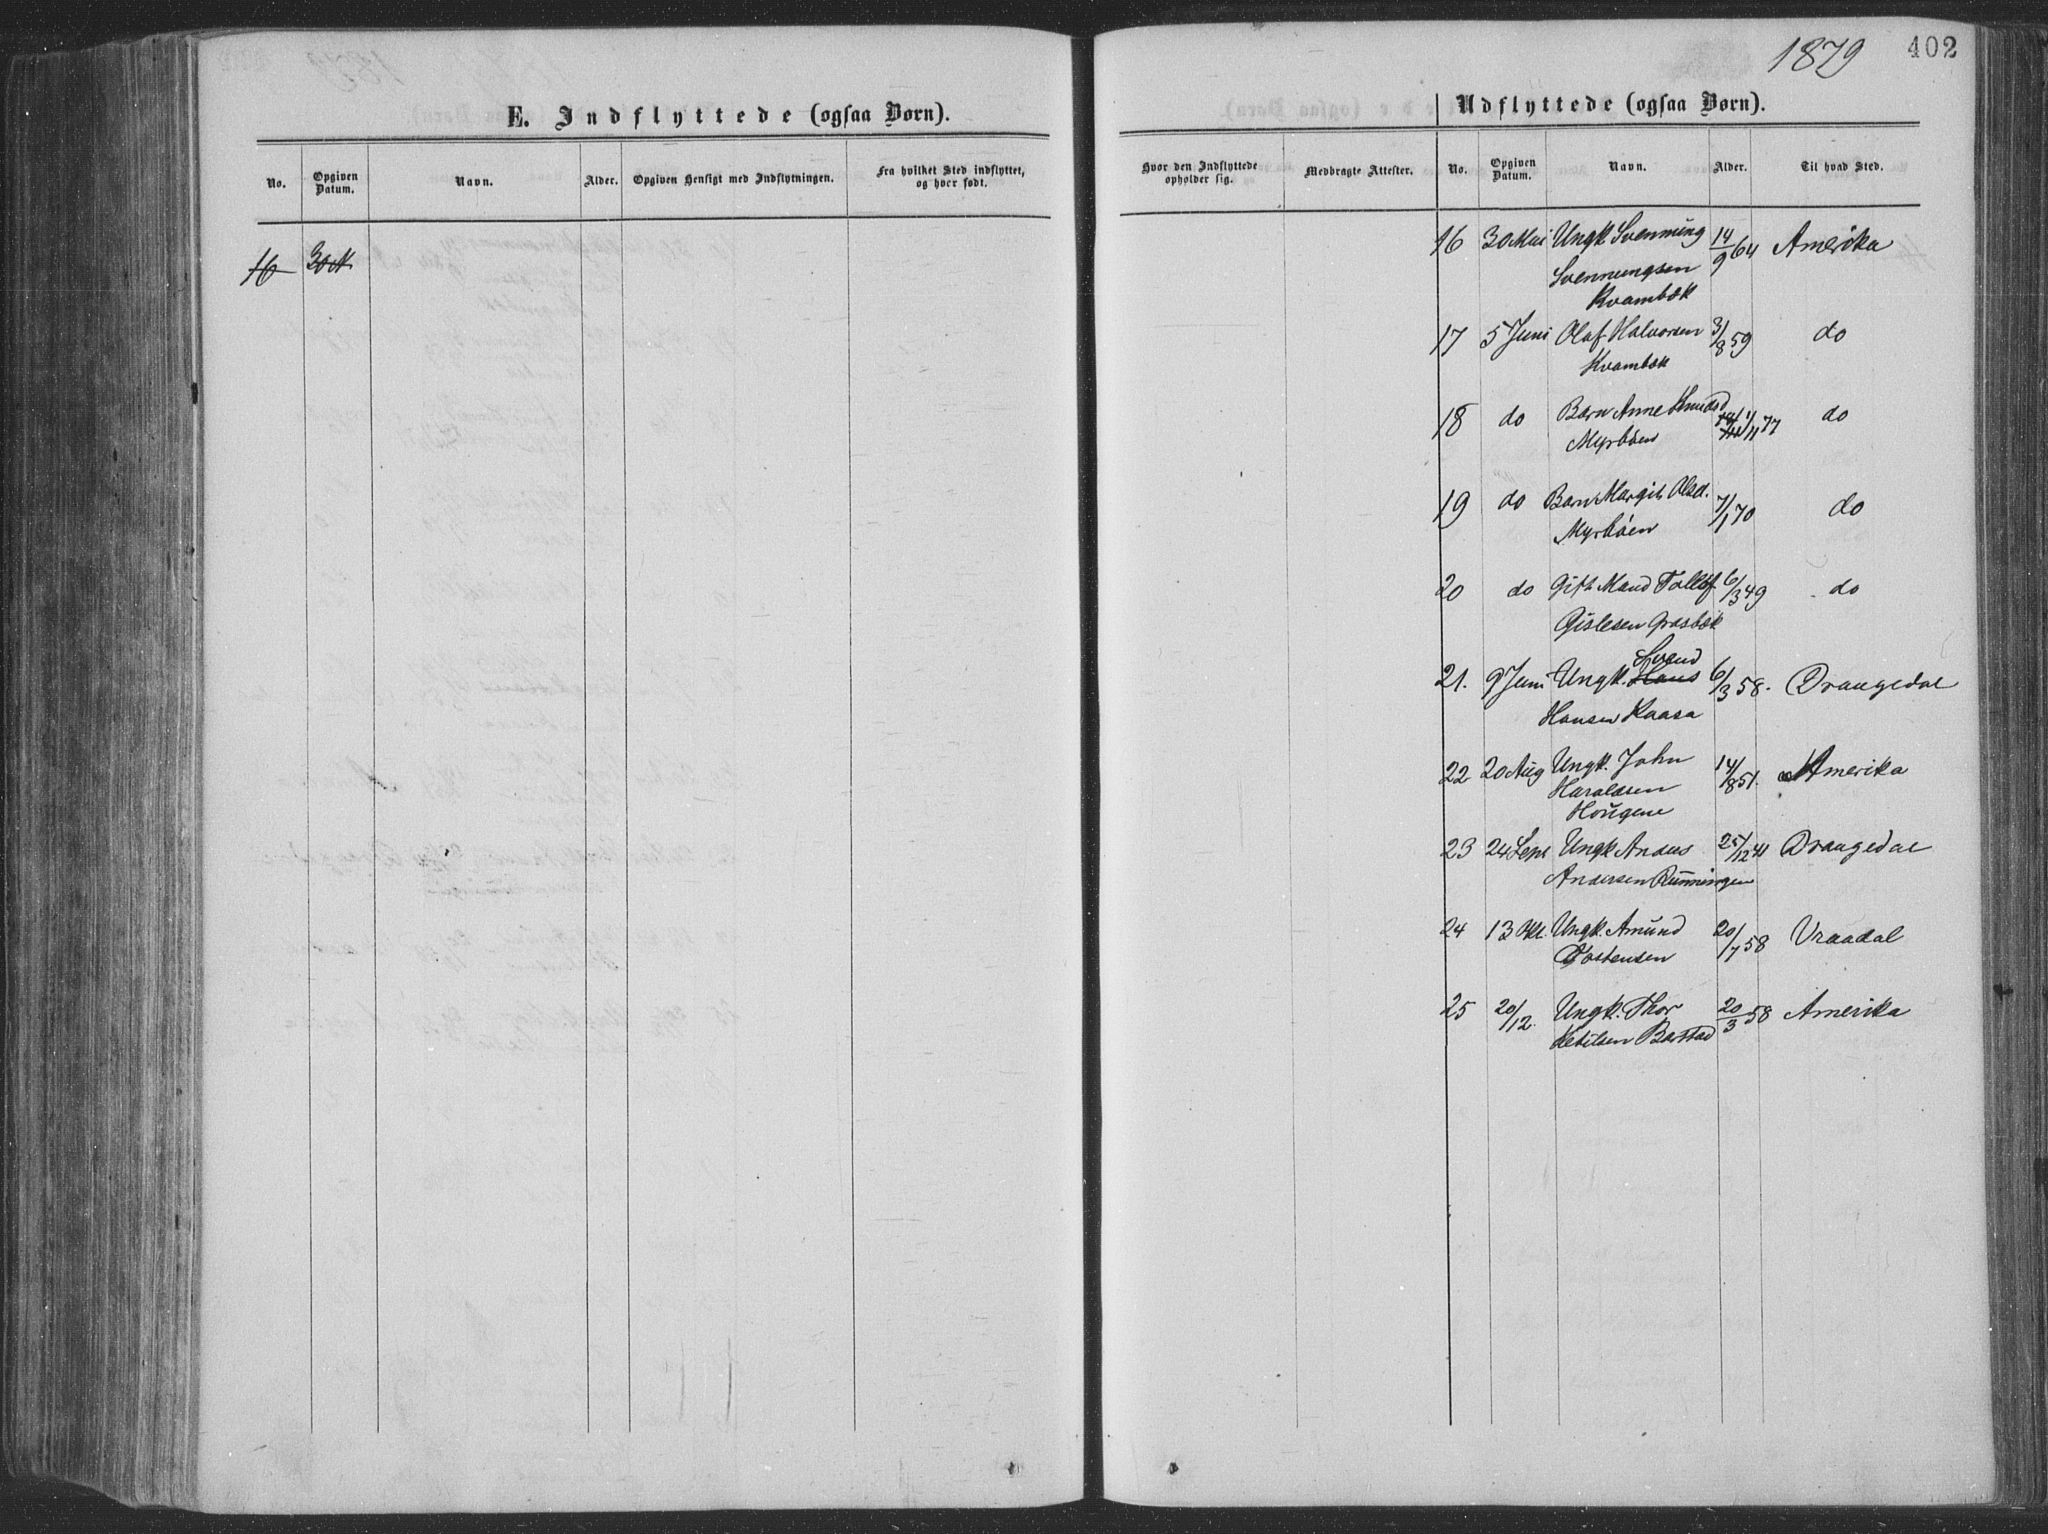 1879
402
E. Indflyttede (ogsaa Børn).
No.
Opgiven Datum.
Navn.
Alder.
Opgiven Hensigt med Indflytningen.
Fra hvilket Sted indflyttet, og hvor født.
16 30 M
Udflyttede (ogsaa Børn).
Hvor den Indflyttede opholder sig.
Medbragte Attester.
No.
Opgiven Datum.
Navn.
Alder.
Til hvad Sted.
16 30 Mai Ungk Svennung 14/9 64 Amerika
Svennungsen
Kvambæk
17 5 Juni Olaf Halvorsen 3/8 59 do
Kvambæk
18 do Barn Anne Knudsd 1/11 77 do
Myrbøen
19 do Barn Margit Olsd. 7/1 70 do
Myrbøen
20 do Gift Mand Tollef 6/3 49 do
Gislesen Græsbæk
Svend
21. 9 Juni Ungk. Hans 6/3 58. Drangedal
Hansen Kaasa
22 20 Aug Ungk. John 14/8 51. Amerika
Haraldsen
Hougene
23 24 Sept Ungk Anders 25/12 41 Drangedal
Andersen Runningen
24 13 Okt. Ungk. Amund 20/7 58 Vraadal
Tostensen
25 20/12. Ungk. Thor 20/3 58 Amerika
Ketilsen Barstad